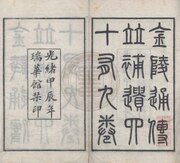 金陵通傳
竝補遺四
十有九卷
光緒甲辰年
瑞華館栞印